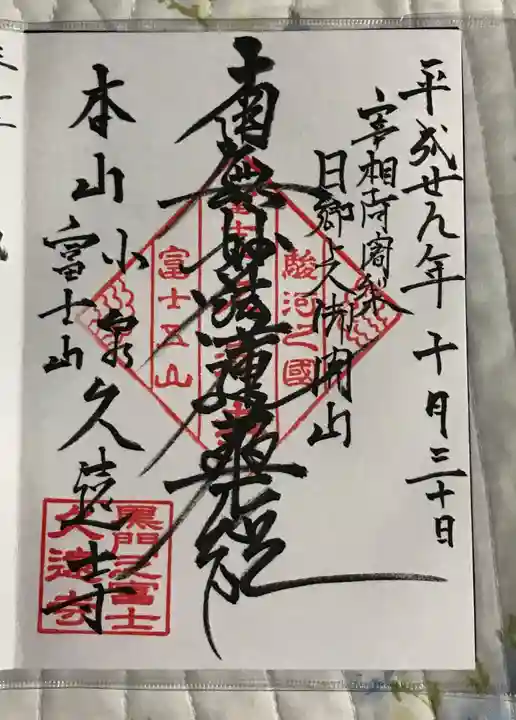 平成廿九年 十月三十日
宰相阿闍梨
日郷上人御開山
南無妙法蓮華経
駿河之國
富士五山
本山小泉久遠寺
富士山
黒門之富士
久遠寺